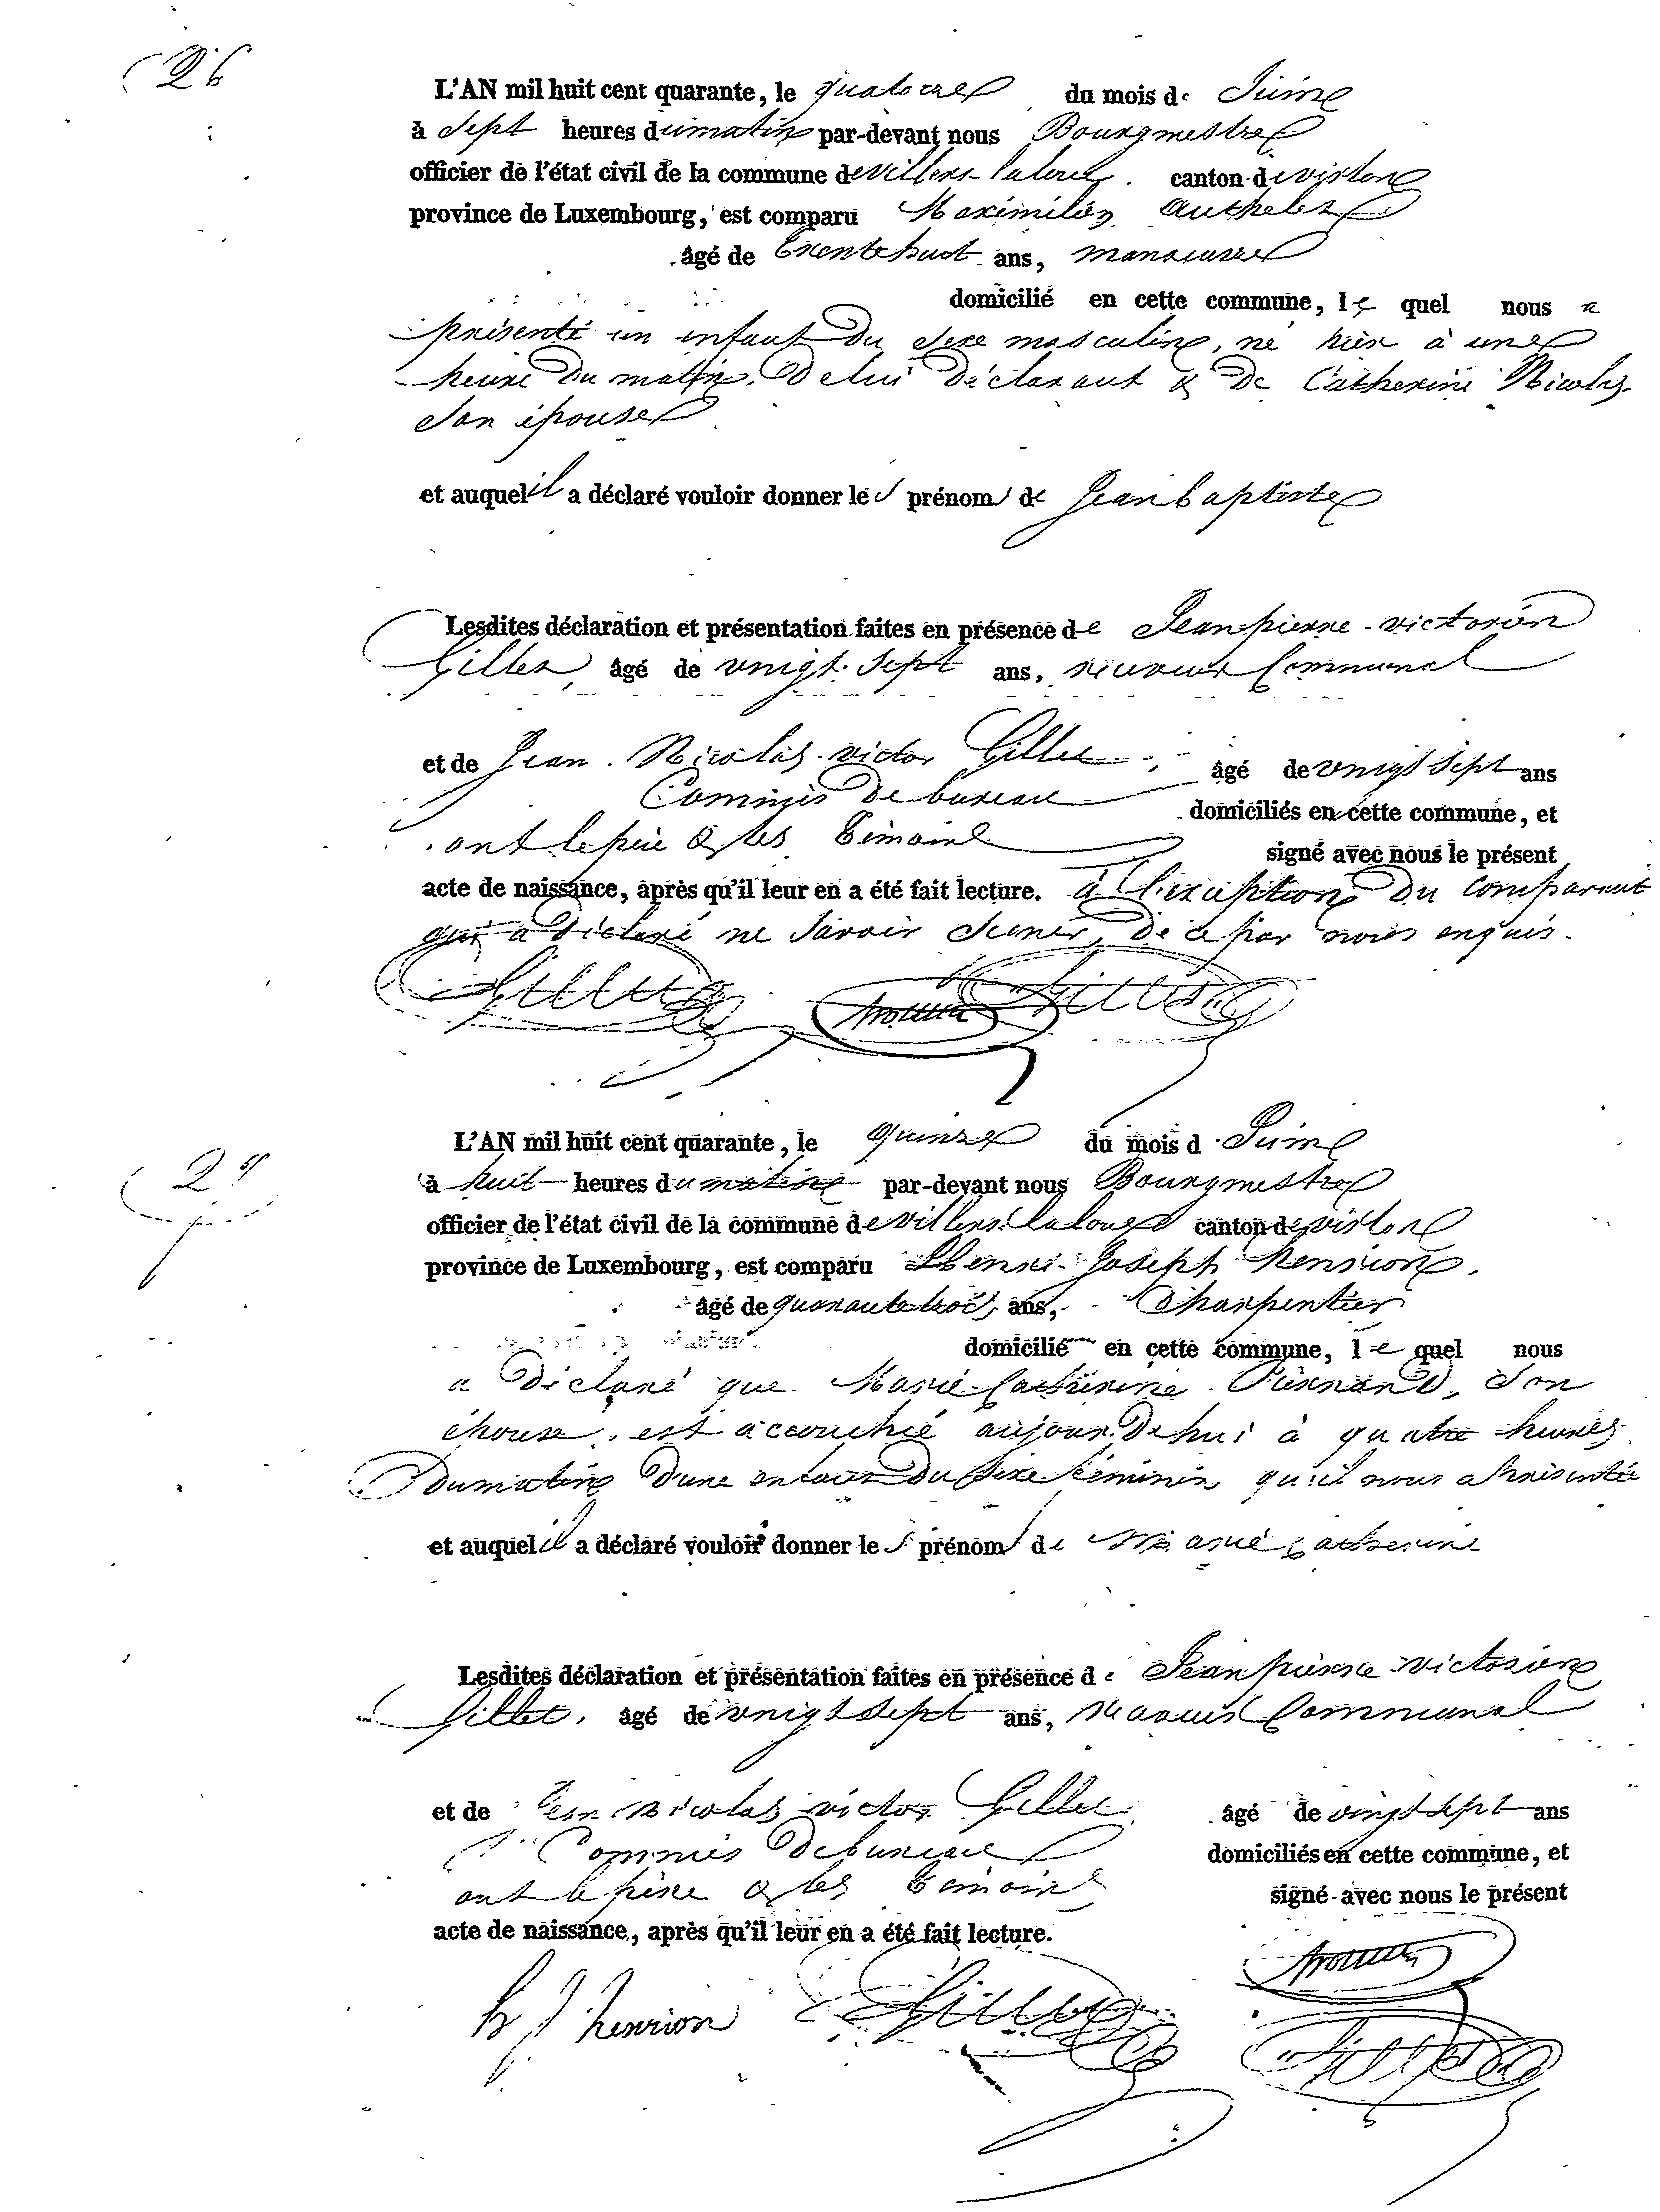 26
L'AN mil huit cent quarante, le quatorze du mois de Juine
à sept heures du matin par-devant nous Bourgmestre
officier de l'état civil de la commune de villers la loue canton de virton
province de Luxembourg, est comparu Maximilien Authelet
âgé de trente huit ans, manoeuvre
domicilié en cette commune, le quel nous a
présenté un enfant du sexe masculin, né hier à une
heure du matin, de lui déclarant & de Catherine Nicolas
son épouse
et auquel il a déclaré vouloir donner les prénoms de Jean baptiste
Lesdites déclaration et présentation faites en présence de Jean pierre victorin
Gillet, âgé de vnigt sept ans, receveur Communal
et de Jean Nicolas victor Gillet, âgé de vnigt sept ans
Commis de bureau domiciliés en cette commune, et
ont le père & les témoins signé avec nous le présent
acte de naissance, après qu'il leur en a été fait lecture. à l'exception du comparant
qui a déclaré ne savoir signer, de ce par nous enquis.
Gillet Gillet
27
L'AN mil huit cent quarante, le quinze du mois de Juine
à huit heures du matin par-devant nous Bourgmestre
officier de l'état civil de la commune de villers la loue canton de virton
province de Luxembourg, est comparu Henri Joseph henrion,
âgé de quarante trois ans, Charpentier
domicilié en cette commune, le quel nous
a déclaré que Marie Catherine son
épouse, est accouchée aujour.dehui à quatre heures
du matin d'une enfant du sexe féminin qu'il nous a présentée
et auquel il a déclaré vouloir donner les prénoms de Marie catherine
Lesdites déclaration et présentation faites en présence de Jean pierre victorin
Gillet, âgé de vnigt sept ans, receveur Communal
et de Jean nicolas victor Gillet âgé de vingt sept ans
Commis de bureau domiciliés en cette commune, et
ont le père & les témoins signé avec nous le présent
acte de naissance, après qu'il leur en a été fait lecture.
h J henrion Gillet
Gillet